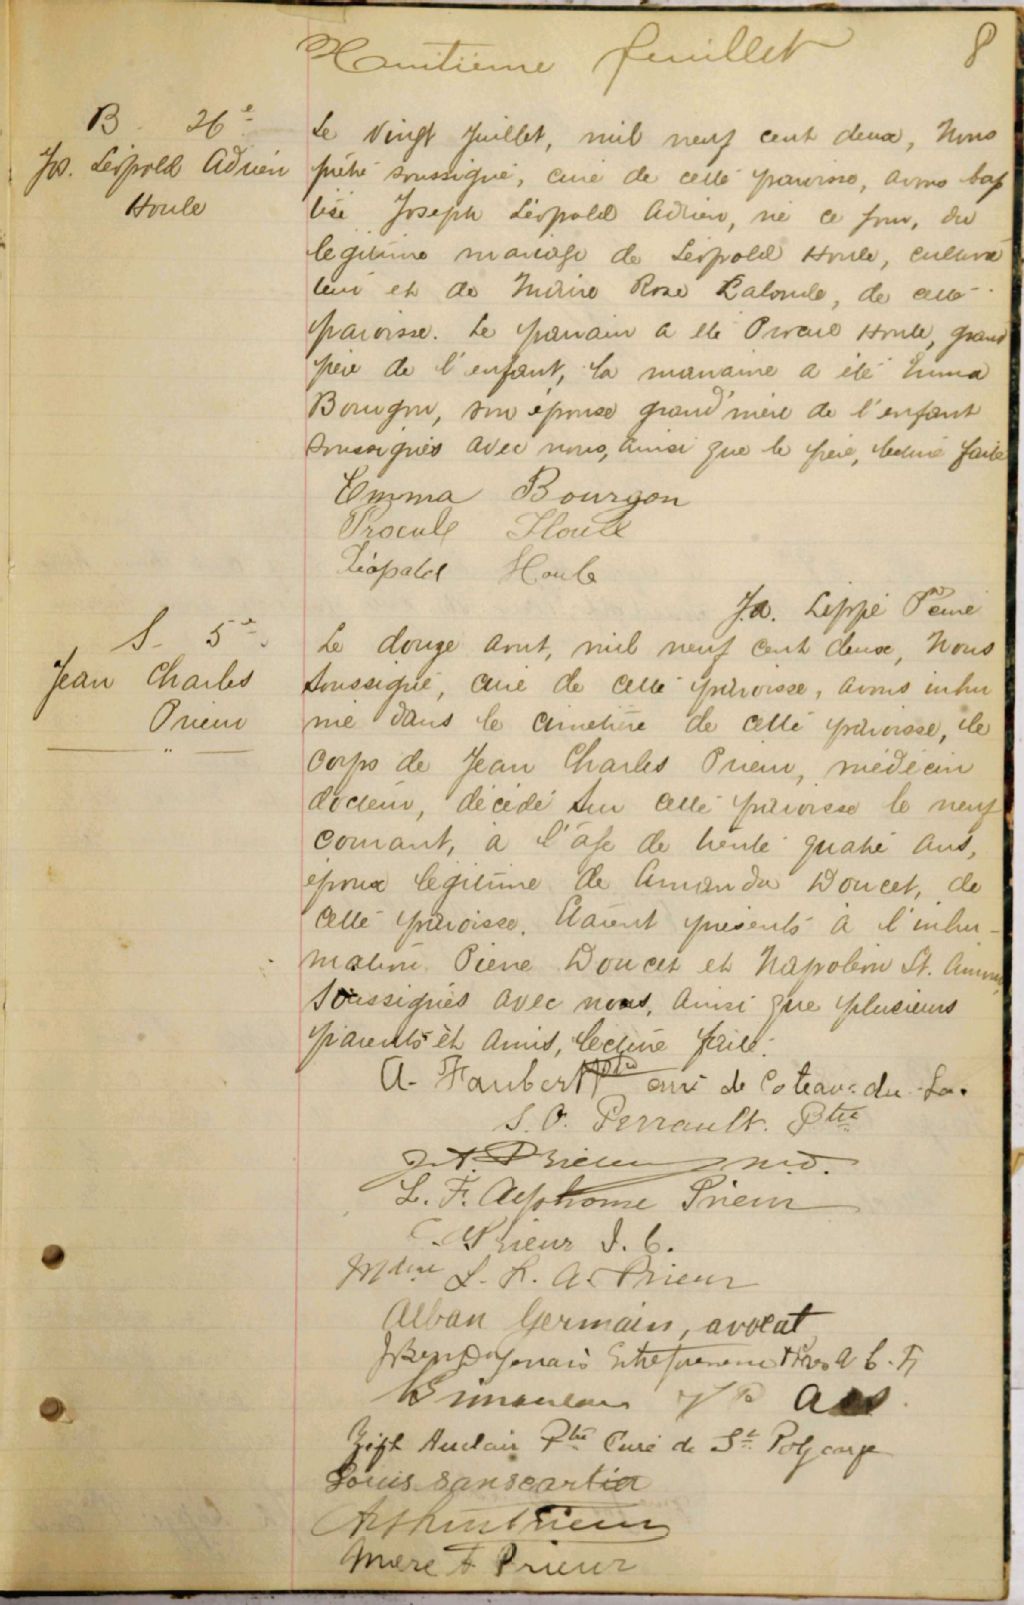 Huitième feuillet 8
B. 26e
Jos. Léopold Adrien
Houle
Le vingt Juillet, mil neuf cent deux, Nous
prêtre soussigné, curé de cette paroisse, avons bap
tisé Joseph Léopold Adrien, né ce jour, du
légitime mariage de Léopold Houle, cultiva
teur et de Marie Rose Lalonde, de cette
paroisse. Le parrain a été Procule Houle, grand
père de l'enfant, la marraine a été Emma
Bourgon, son épouse grand'mère de l'enfant
soussignés avec nous, ainsi que le père, lecture faite
Emma Bourgon
Procule Houle
Léopold Houle
J.A. Lippé Ptre curé
S. 5e
Jean Charles
Prieur
Le douze août, mil neuf cent deux, Nous
soussigné, curé de cette paroisse, avons inhu
mé dans le cimetière de cette paroisse, le
corps de Jean Charles Prieur, médecin
docteur, décédé sur cette paroisse le neuf
courant, à l'âge de trente quatre ans,
époux légitime de Amanda Doucet, de
cette paroisse. Étaient présents à l'inhu-
mation Pierre Doucet et Napoléon St. Amour,
soussignés avec nous, ainsi que plusieurs
parents et amis, lecture faite.
A. Faubert Ptre curé de Coteau-du-Lac
S. O. Perrault. Ptre
J. A. Prieur M.D.
L. F. Alphonse Prieur
C. Prieur I. C.
Mdme L. F. A. Prieur
Alban Germain, avocat
Dagenais Entrepreneur A C. F.
Auclair Ptre Curé de St Polycarpe
Louis Sanscartier
Arthur Prieur
Marc A Prieur